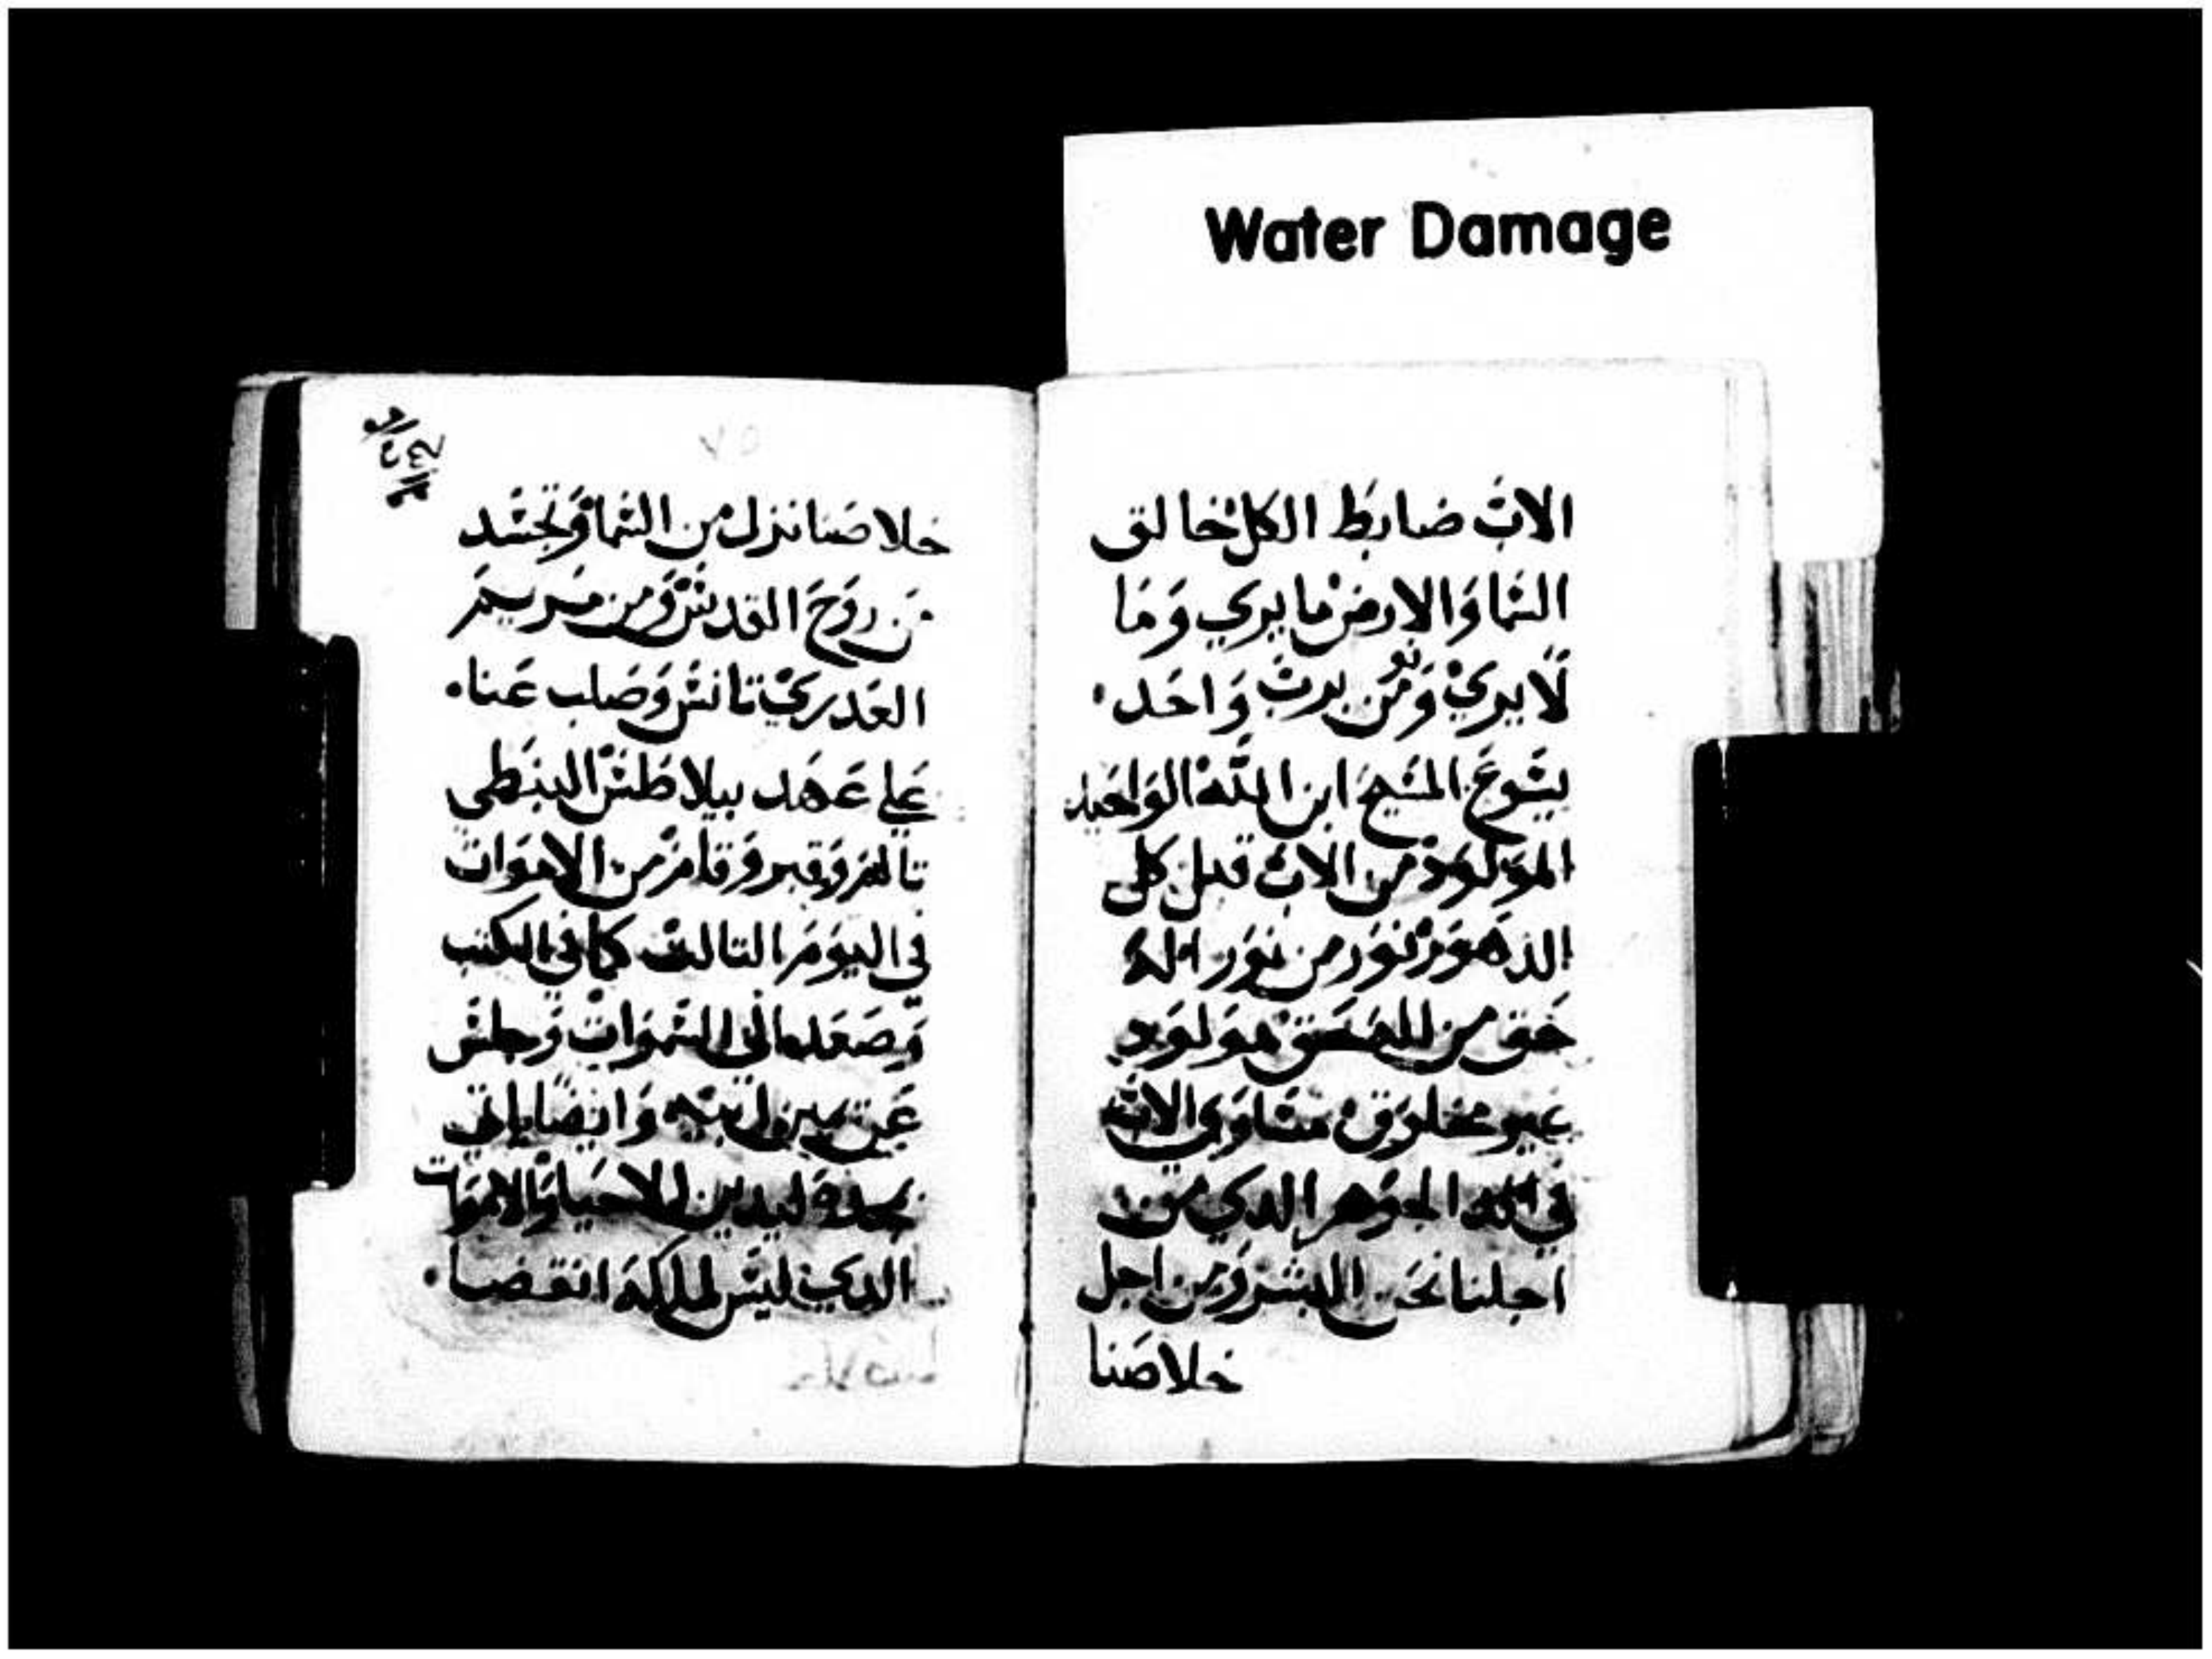 Water Damage
الاب ضابط الكل خالق
السما والارض ما يري وما
لا يري ونومن برب واحد
يسوع المسيح ابن الله الواحيد
المولود من الاب قبل كل
الدهور نور من نور اله
حق من اله حق مولود
غير مخلوق مساوي الاب
في الجوهر الدي من
اجلنا نحن البشر ومن اجل
خلاصنا
٧٥
خلاصنا نزل من السما وتجسد
من روح القدس ومن مريم
العدري تانس وصلب عنا
علي عهد بيلاطس البنطي
تالم وقبر وقام من الاموات
في اليوم التالت كما في الكتب
وصعد الي السموات وجلس
عن يمين ابيه وايضا ياتي
بمجده ليدين الاحيا والاموات
الدي ليس لملكه انقضا